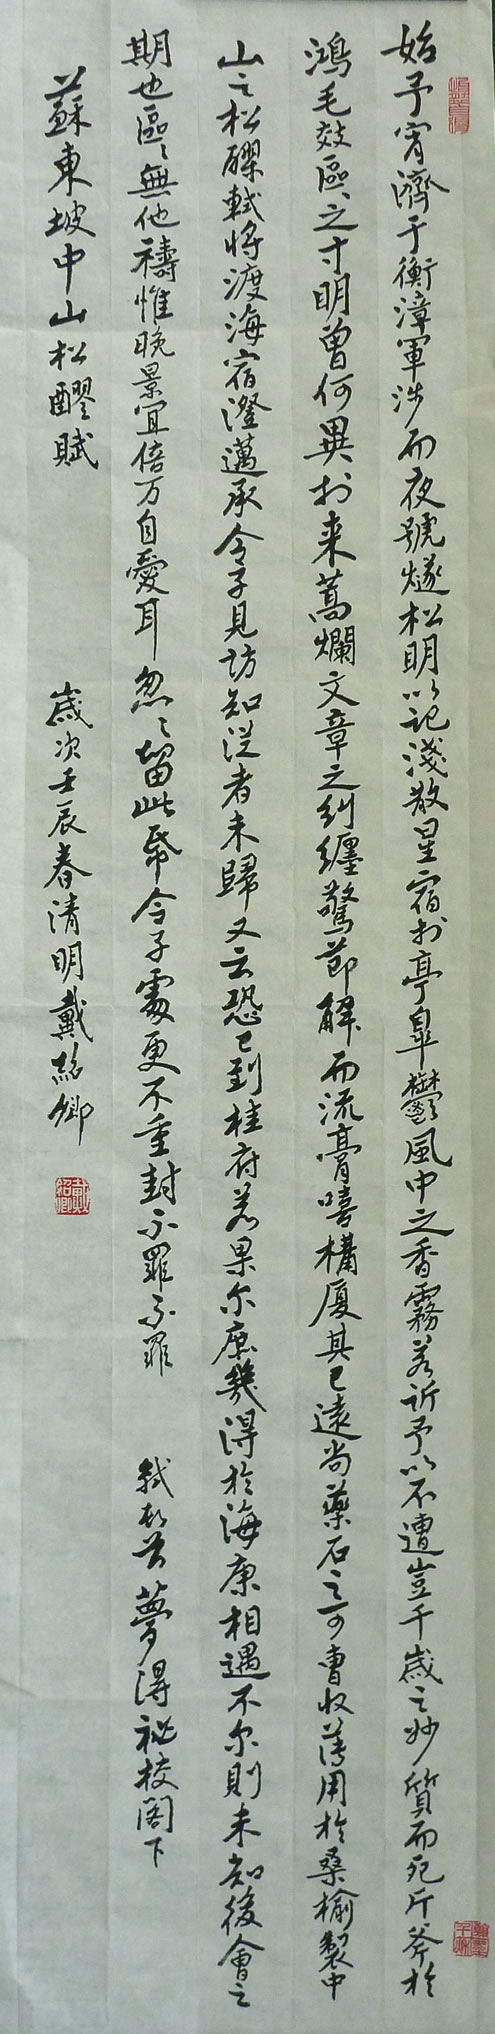 始予宵濟于衡漳軍涉而夜號燧松明以記淺散星宿於亭皐鬱風中之香霧若訴予以不遭豈千歲之妙質而死斤斧於
鴻毛效區々之寸明曾何異於束蒿爛文章之糾纏驚節解而流膏嘻構厦其已遠尚藥石之可曹收薄用於桑榆製中
山之松醪軾將渡海宿澄邁承令子見訪知從者未歸又云恐已到桂府若果尔庶幾得於海康相遇不尔則未知後會之
期也區々無他禱惟晚景宜倍万自愛耳忽々留此帋令子處更不重封不罪不罪 軾頓首夢得祕校閣下
蘇東坡中山松醪賦 歲次壬辰春清明戴紹卿